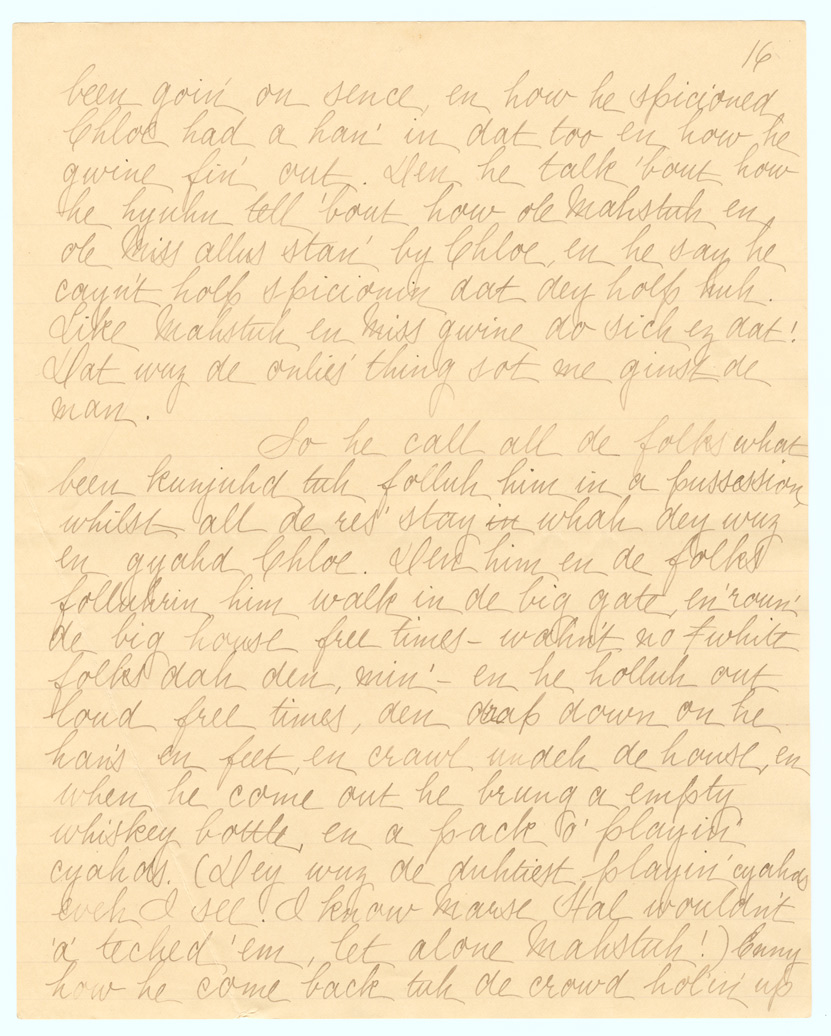 16
been goin' on sence, en how he spicioned
Chloe had a han' in dat too en how he
gwine fin' out. Den he talk 'bout how
he hyuhn tell 'bout how ole Mahstuh en
ole Miss allus stan' by Chloe, en he say he
cayn't holp spicionin dat dey holp huh.
Like Mahstuh en Miss gwine do sich ez dat!
Dat wuz de onlies' thing sot me ginst de
man.
So he call all de folks what
been kunjuhd tuh folluh him in a pussession,
whilst all de res' stay in whah dey wuz
en gyahd Chloe. Den him en de folks
folluhrin him walk in de big gate, en 'roun'
de big house free times - wahn't no white
folks dah den, min' - en he holluh out
loud free times, den drap down on he
han's en feet, en crawl undeh de house, en
when he come out he brung a empty
whiskey bottle, en a pack o' playin'
cyahds. (Dey wuz de duhtiest playin' cyahds
eveh I see! I know Marse Hal wouldn't
'a' teched 'em, let alone Mahstuh!) Enny
how he come back tuh de crowd hol'in' up